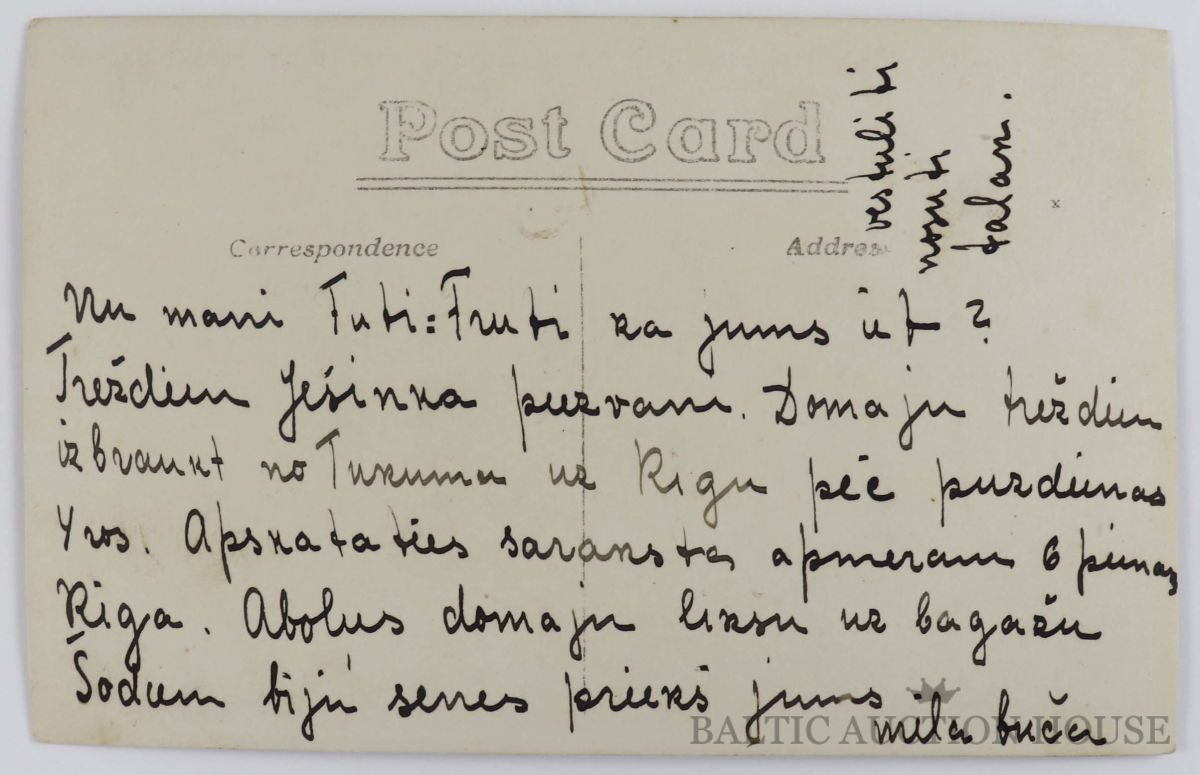 Post Card
Correspondence
Address
vestuli ti
nosuti
talak.
Nu mani Tuti=Fruti ka jums iet?
Trešdien Ješinka piezvani. Domaju trešdien
izbraukt no Tukuma uz Rigu pēc pusdienas
4ros. Apskataties saraksta apmeram 6 pienas
Riga. Abolus domaju liksu uz bagažu
Šodien biju senes priekš jums
mila buča
BALTIC AUCTION HOUSE